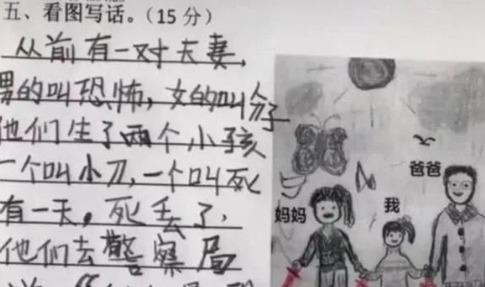 五、看图写话。（15分）
从前有一对夫妻，
男的叫恐怖，女的叫分子
他们生了两个小孩
一个叫小刀，一个叫死
有一天，死丢了，
他们去警察局
妈妈
我
爸爸